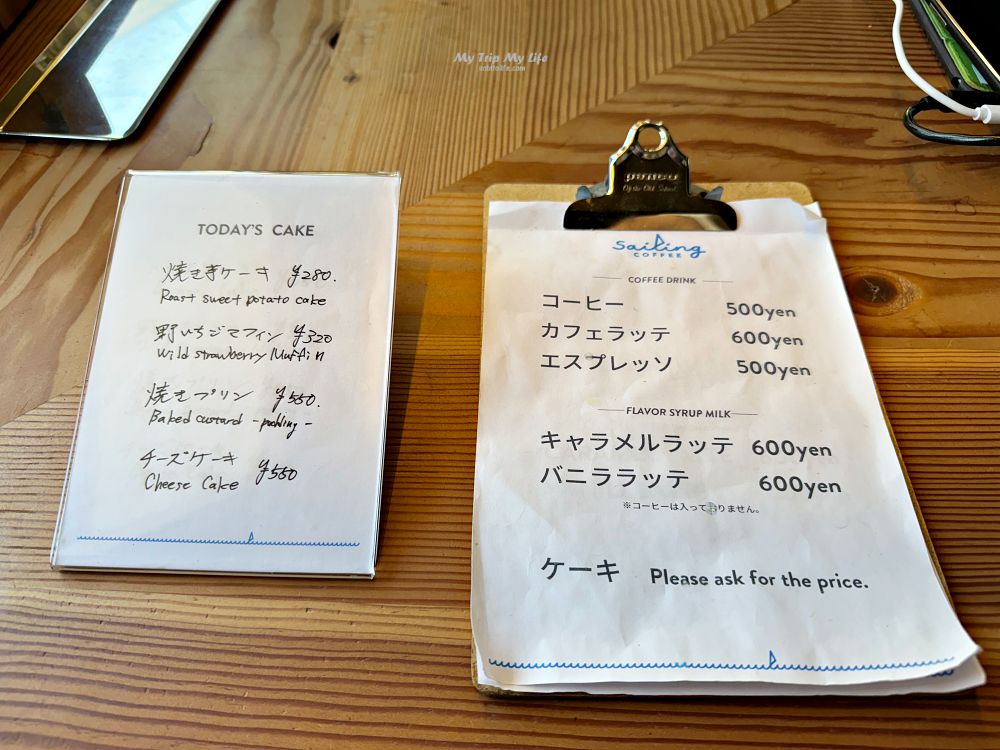 My Trip My Life
TODAY'S CAKE
焼き芋ケーキ ¥280.
Roast sweet potato cake
野いちごマフィン ¥320
Wild strawberry Muffin
焼きプリン ¥550.
Baked custard -pudding-
チーズケーキ ¥550
Cheese Cake
penco
Of the Old School
Sailing
COFFEE
COFFEE DRINK
コーヒー 500yen
カフェラッテ 600yen
エスプレッソ 500yen
FLAVOR SYRUP MILK
キャラメルラッテ 600yen
バニララッテ 600yen
※コーヒーは入っておりません。
ケーキ Please ask for the price.